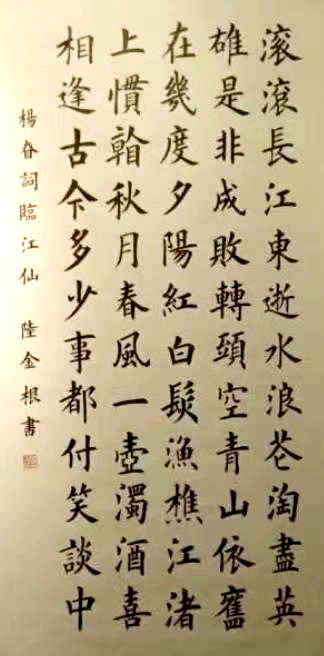 滚滚長江東逝水浪花淘盡英
雄是非成敗轉頭空青山依舊
在幾度夕陽紅白髮漁樵江渚
上慣看秋月春風一壺濁酒喜
相逢古今多少事都付笑談中
楊昚詞臨江仙 陸金根書